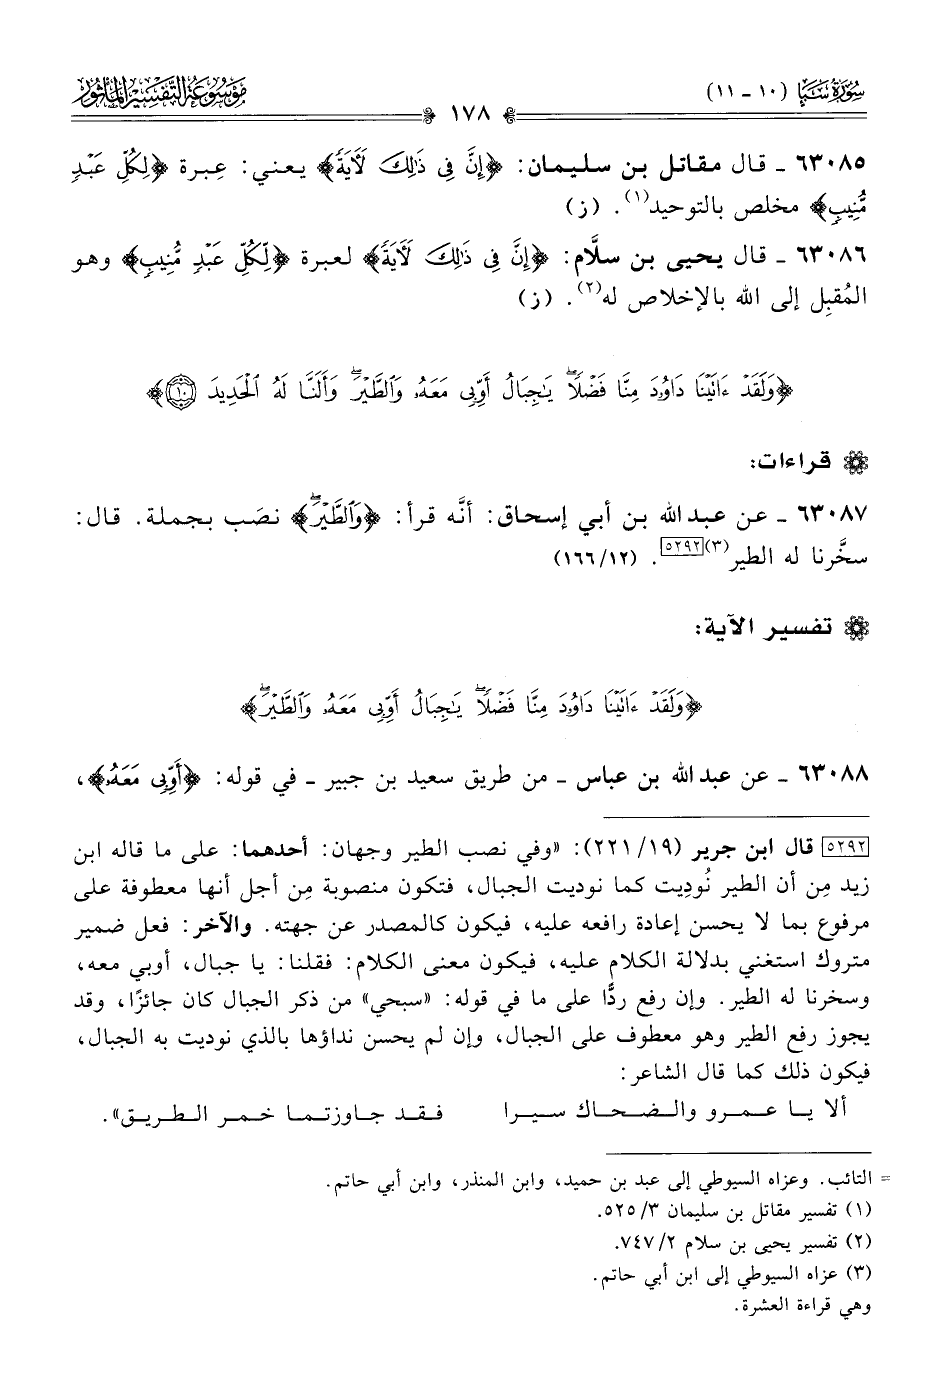 سُورَةُ سَبَإٍ (١٠ - ١١)
١٧٨
مَوْسُوعَةُ التَّفْسِيرِ المَأْثُورِ
٦٣٠٨٥ - قال مقاتل بن سليمان: ﴿إِنَّ فِي ذَٰلِكَ لَآيَةً﴾ يعني: عِبرة ﴿لِكُلِّ عَبْدٍ
مُّنِيبٍ﴾ مخلص بالتوحيد(١). (ز)
٦٣٠٨٦ - قال يحيى بن سلَّام: ﴿إِنَّ فِي ذَٰلِكَ لَآيَةً﴾ لعبرة ﴿لِّكُلِّ عَبْدٍ مُّنِيبٍ﴾ وهو
المُقبِل إلى الله بالإخلاص له(٢). (ز)
﴿وَلَقَدْ ءَاتَيْنَا دَاوُۥدَ مِنَّا فَضْلًاۖ يَٰجِبَالُ أَوِّبِى مَعَهُۥ وَٱلطَّيْرَۖ وَأَلَنَّا لَهُ ٱلْحَدِيدَ ١٠﴾
قراءات:
٦٣٠٨٧ - عن عبد الله بن أبي إسحاق: أنَّه قرأ: ﴿وَٱلطَّيْرَۖ﴾ نصَب بجملة. قال:
سخَّرنا له الطير(٣)[٥٢٩٢]. (١٢/ ١٦٦)
تفسير الآية:
﴿وَلَقَدْ ءَاتَيْنَا دَاوُۥدَ مِنَّا فَضْلًاۖ يَٰجِبَالُ أَوِّبِى مَعَهُۥ وَٱلطَّيْرَۖ﴾
٦٣٠٨٨ - عن عبد الله بن عباس - من طريق سعيد بن جبير - في قوله: ﴿أَوِّبِى مَعَهُۥ﴾،
[٥٢٩٢] قال ابن جرير (١٩/ ٢٢١): «وفي نصب الطير وجهان: أحدهما: على ما قاله ابن
زيد مِن أن الطير نُودِيت كما نوديت الجبال، فتكون منصوبة مِن أجل أنها معطوفة على
مرفوع بما لا يحسن إعادة رافعه عليه، فيكون كالمصدر عن جهته. والآخر: فعل ضمير
متروك استغني بدلالة الكلام عليه، فيكون معنى الكلام: فقلنا: يا جبال، أوبي معه،
وسخرنا له الطير. وإن رفع ردًّا على ما في قوله: «سبحي» من ذكر الجبال كان جائزًا، وقد
يجوز رفع الطير وهو معطوف على الجبال، وإن لم يحسن نداؤها بالذي نوديت به الجبال،
فيكون ذلك كما قال الشاعر:
ألا يا عمرو والضحاك سيرا فقد جاوزتما خمر الطريق».
= التائب. وعزاه السيوطي إلى عبد بن حميد، وابن المنذر، وابن أبي حاتم.
(١) تفسير مقاتل بن سليمان ٣/ ٥٢٥.
(٢) تفسير يحيى بن سلام ٢/ ٧٤٧.
(٣) عزاه السيوطي إلى ابن أبي حاتم.
وهي قراءة العشرة.